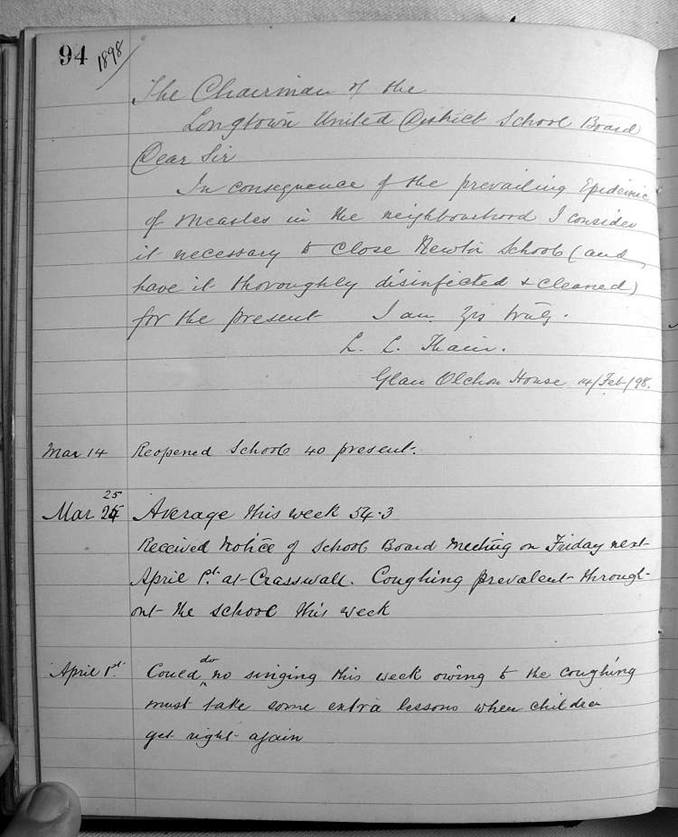 94 1898/
The Chairman of the
Longtown United District School Board
Dear Sir
In consequence of the prevailing Epidemic
of measles in the neighbourhood I consider
it necessary to close Newton School (and
have it thoroughly disinfected & cleaned)
for the present I am yrs truly.
L. L. Thain.
Glan Olchon House 14/Feb/98.
Mar 14 Reopened School 40 present.
25
Mar 24 Average this week 54.3
Received notice of School Board Meeting on Friday next
April 1st. at Crasswall. Coughing prevalent through-
out the school this week
April 1st. Could do no singing this week owing to the coughing
must take some extra lessons when children
get right again